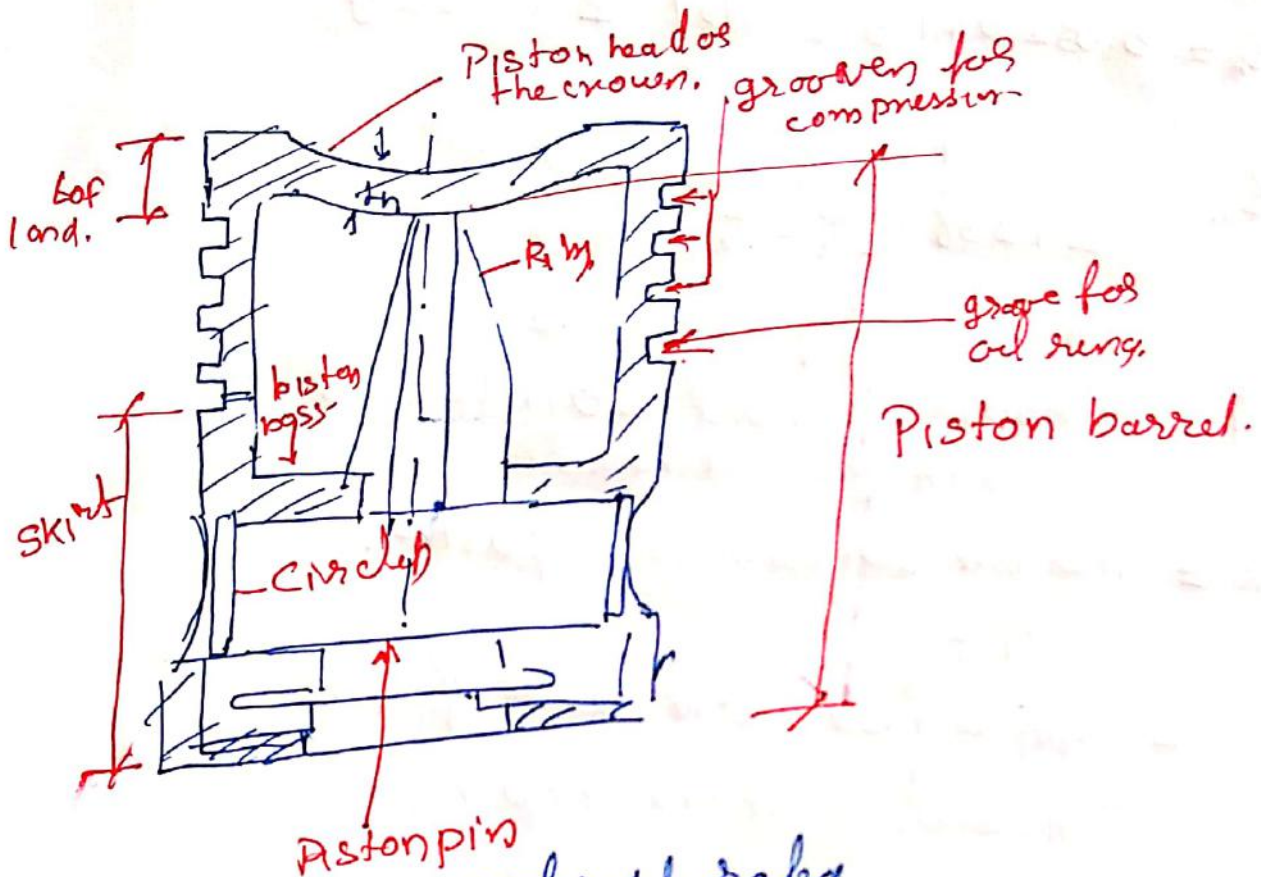 Piston head or
the crown.
grooven for
compression
top
land.
th
Rib
groove for
oil ring.
piston
boss
Piston barrel.
Skirt
Circlip
Piston pin